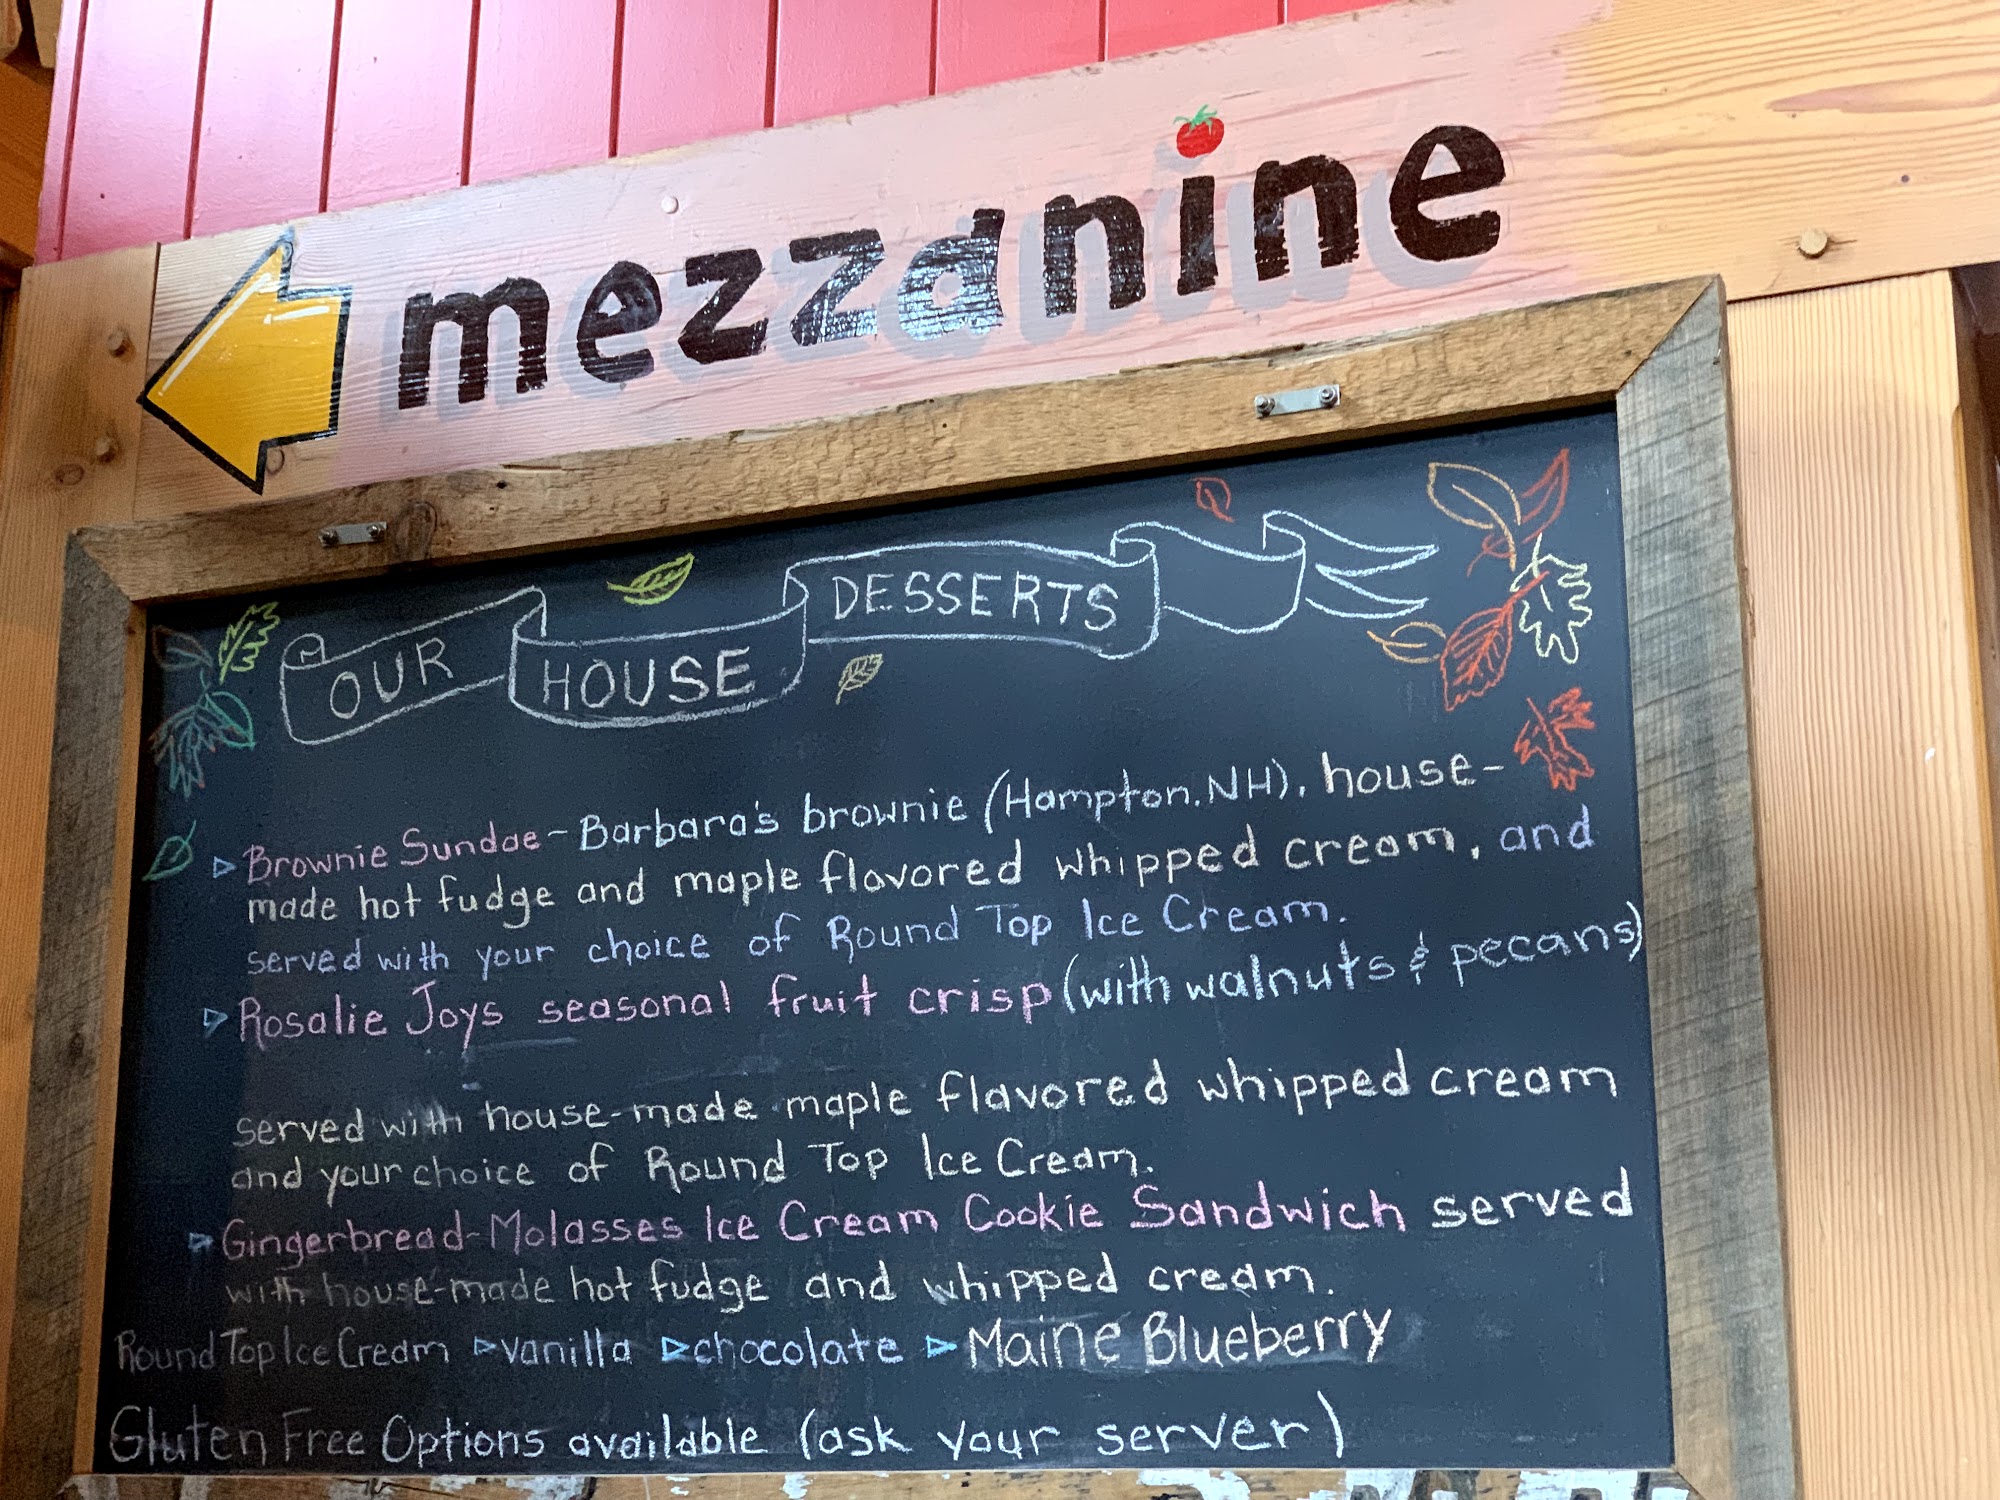 mezzanine
OUR HOUSE DESSERTS
Brownie Sundae - Barbara's brownie (Hampton, NH), house-
made hot fudge and maple flavored whipped cream, and
served with your choice of Round Top Ice Cream.
Rosalie Joys seasonal fruit crisp (with walnuts & pecans)
served with house-made maple flavored whipped cream
and your choice of Round Top Ice Cream.
Gingerbread-Molasses Ice Cream Cookie Sandwich served
with house-made hot fudge and whipped cream.
Round Top Ice Cream ▹vanilla ▹chocolate ▹Maine Blueberry
Gluten Free Options available (ask your server)